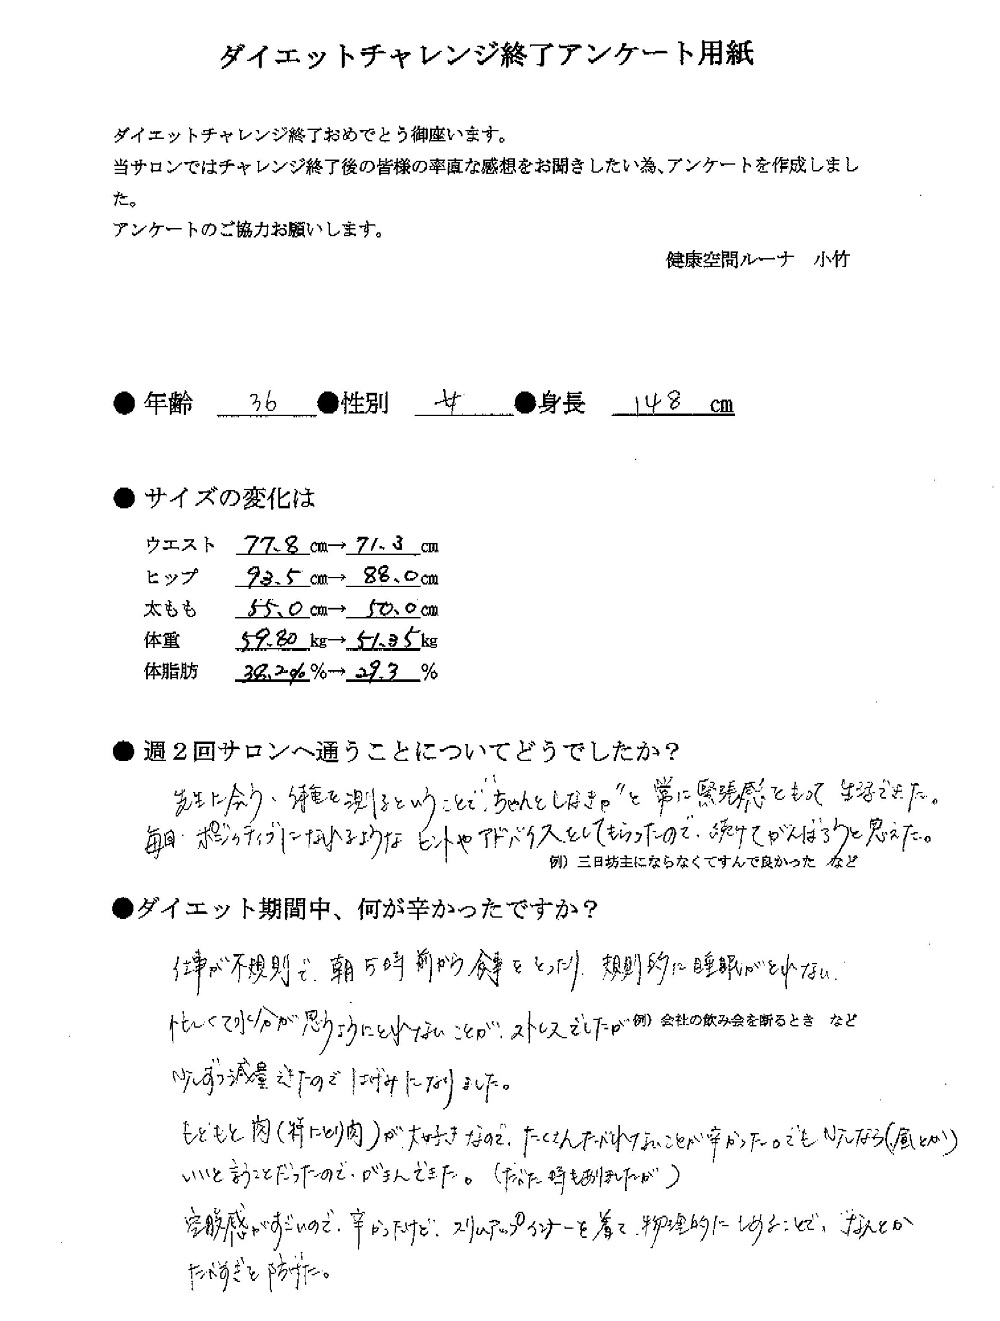 ダイエットチャレンジ終了アンケート用紙
ダイエットチャレンジ終了おめでとう御座います。
当サロンではチャレンジ終了後の皆様の率直な感想をお聞きしたい為、アンケートを作成しまし
た。
アンケートのご協力お願いします。
健康空間ルーナ 小竹
● 年齢 36 ●性別 女 ●身長 148 cm
● サイズの変化は
ウエスト 77.8 cm→ 71.3 cm
ヒップ 93.5 cm→ 88.0 cm
太もも 55.0 cm→ 50.0 cm
体重 59.80 kg→ 51.35 kg
体脂肪 38.2% %→ 29.3 %
● 週2回サロンへ通うことについてどうでしたか?
先生に会う、体重を測るということで"ちゃんとしなきゃ"と常に緊張感をもって生活できた。
毎日ポジティブになれるようなヒントやアドバイスをしてもらったので、続けてがんばろうと思えた。
例)三日坊主にならなくてすんで良かった など
●ダイエット期間中、何が辛かったですか?
仕事が不規則で、朝5時前から食事をとったり、規則的に睡眠がとれない、
忙しくて水分が思うようにとれないことが、ストレスでしたが
例)会社の飲み会を断るとき など
少しずつ減量できたのではげみになりました。
もともと肉(特にとり肉)が大好きなので、たくさんたべれないことが辛かった。でも少しなら(昼とか)
いいと言うことだったので、がまんできた。(たべた時もありましたが)
空腹感がすごいので、辛かったけど、スリムアップインナーを着て、物理的にしめることで、なんとか
たべすぎを防げた。